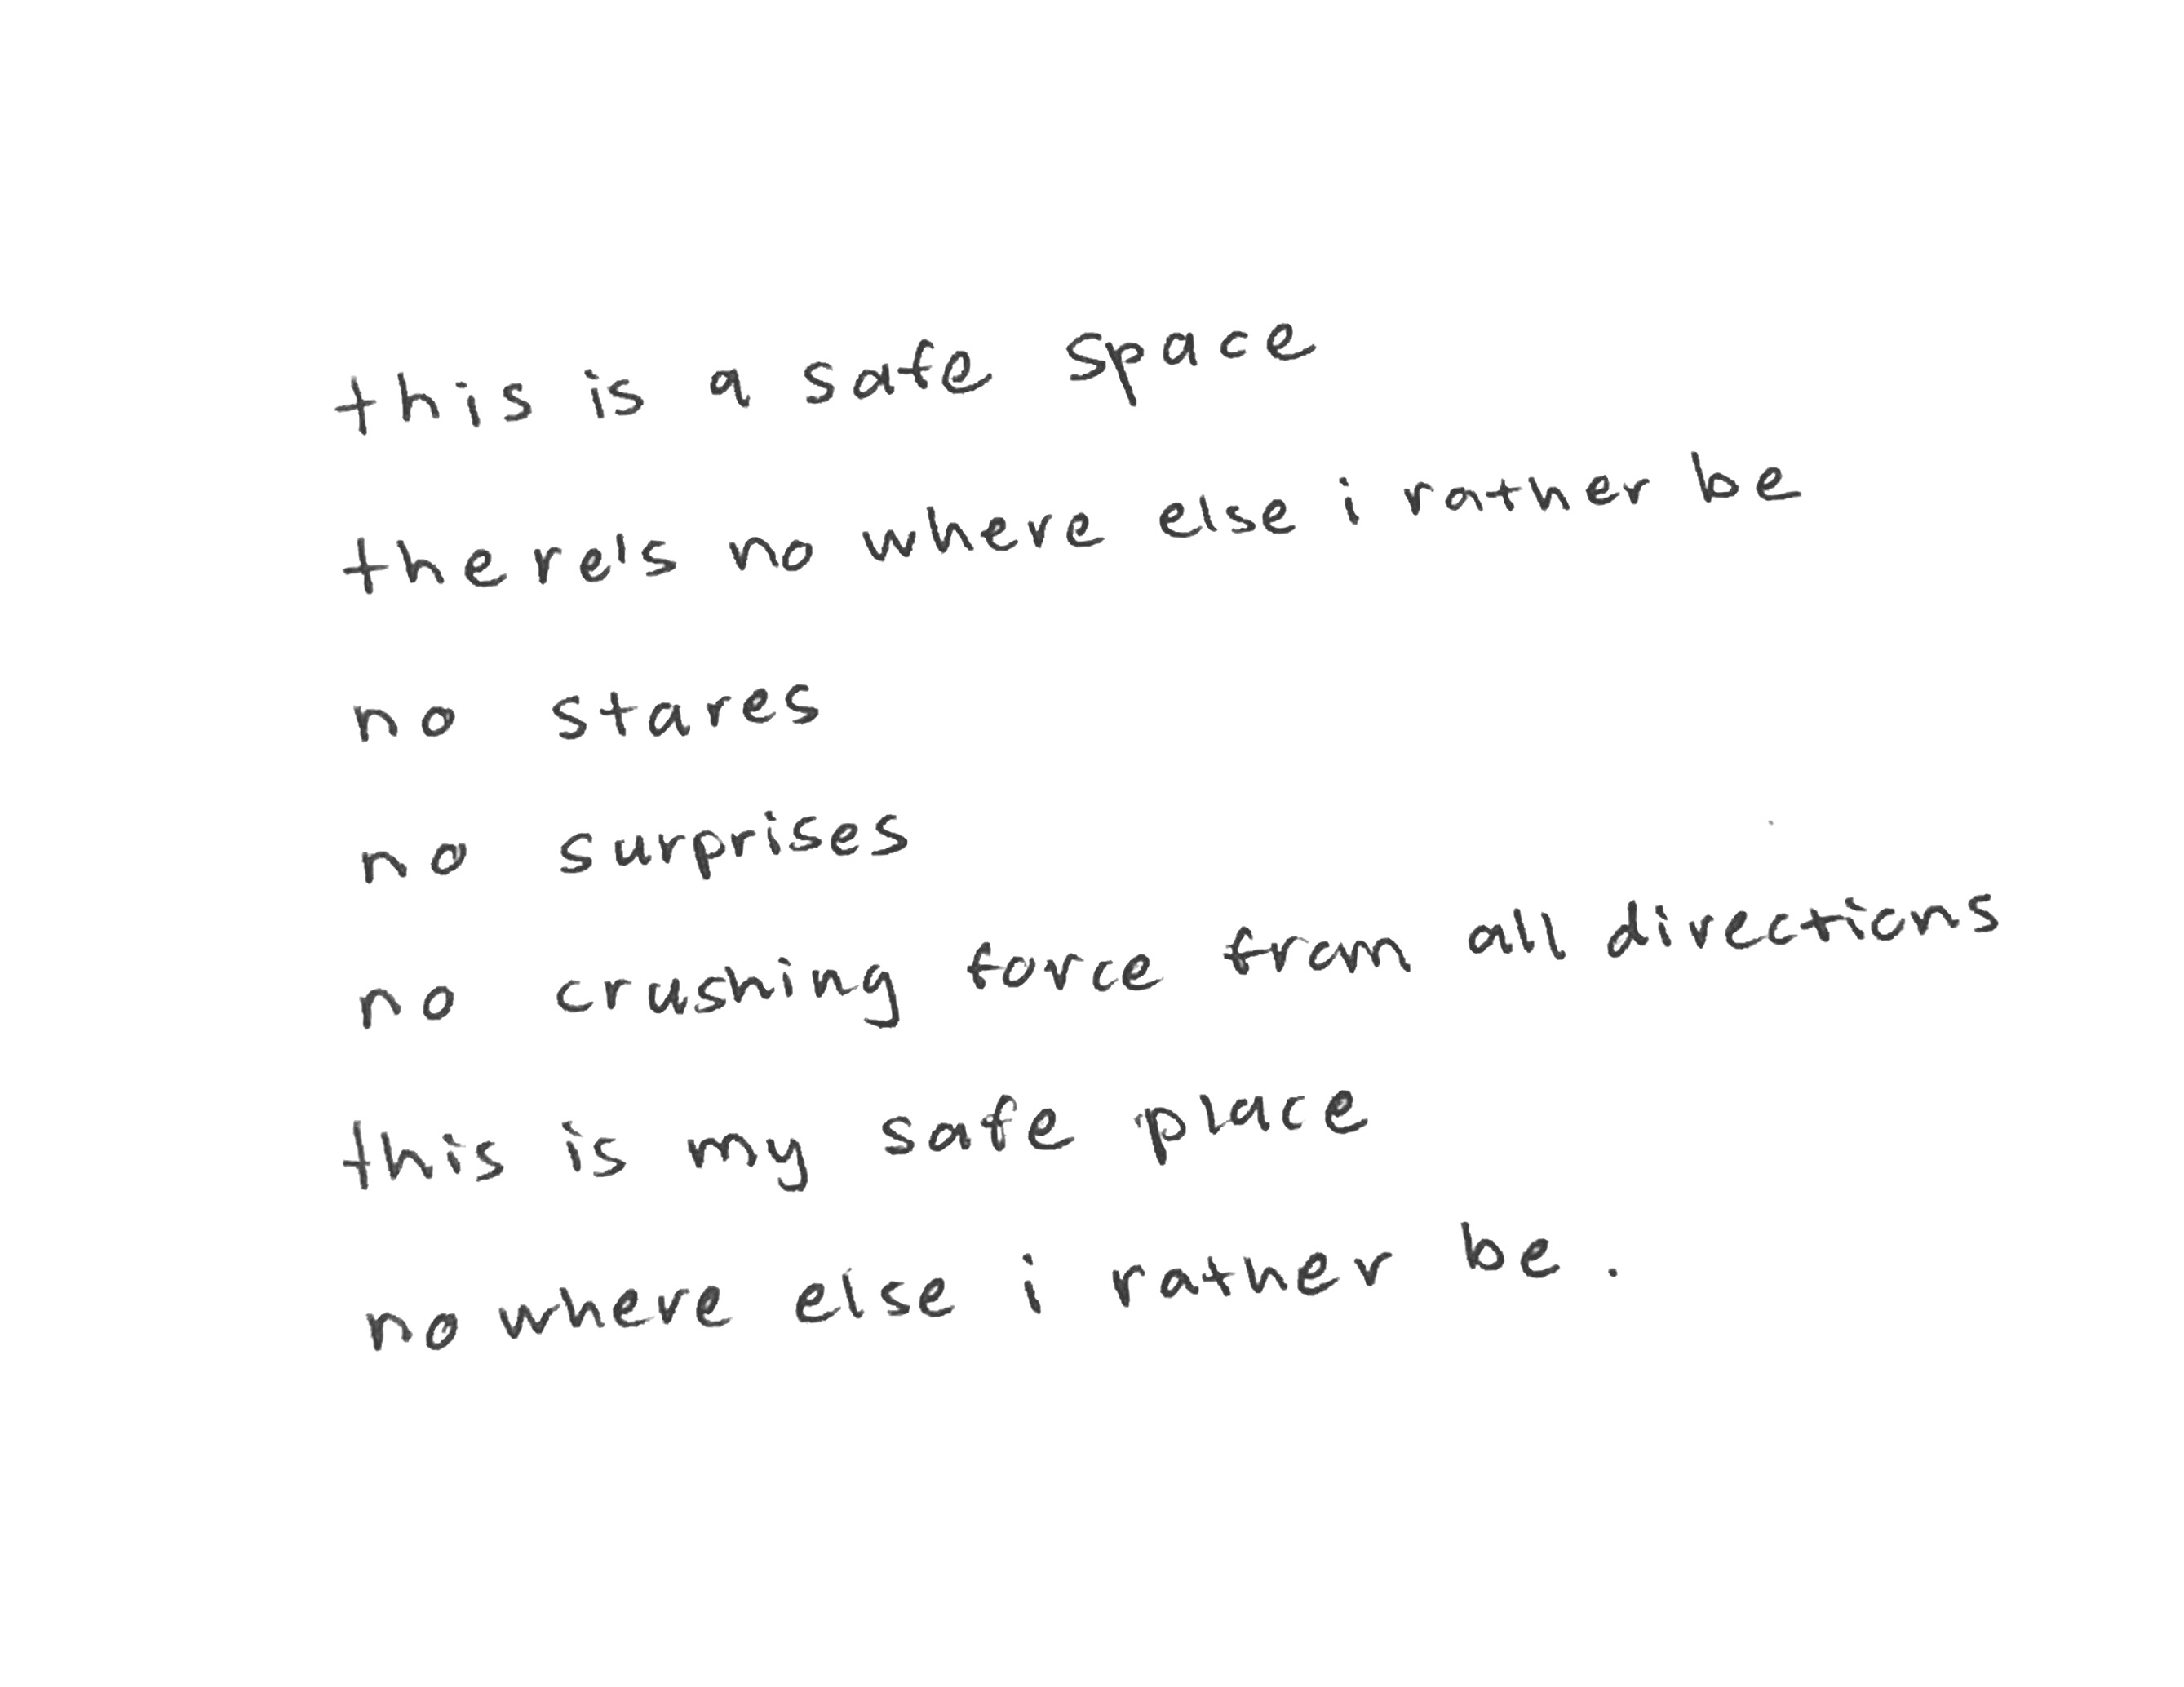 this is a safe space
there's no where else i rather be
no stares
no surprises
no crushing force from all directions
this is my safe place
no where else i rather be.